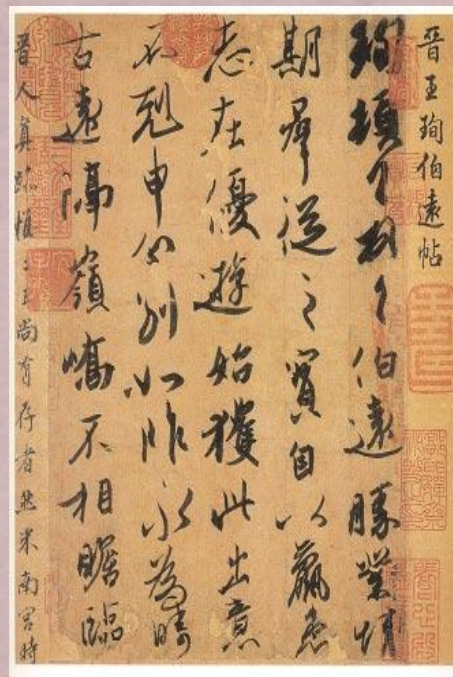 晋王珣伯遠帖
珣頓首頓首伯遠勝業情
期群從之寶自以羸患
志在優遊始獲此出意
不剋申分別如昨永為疇
古遠隔嶺嶠不相瞻臨
晋人真跡惟二王尚有存者然米南宮時